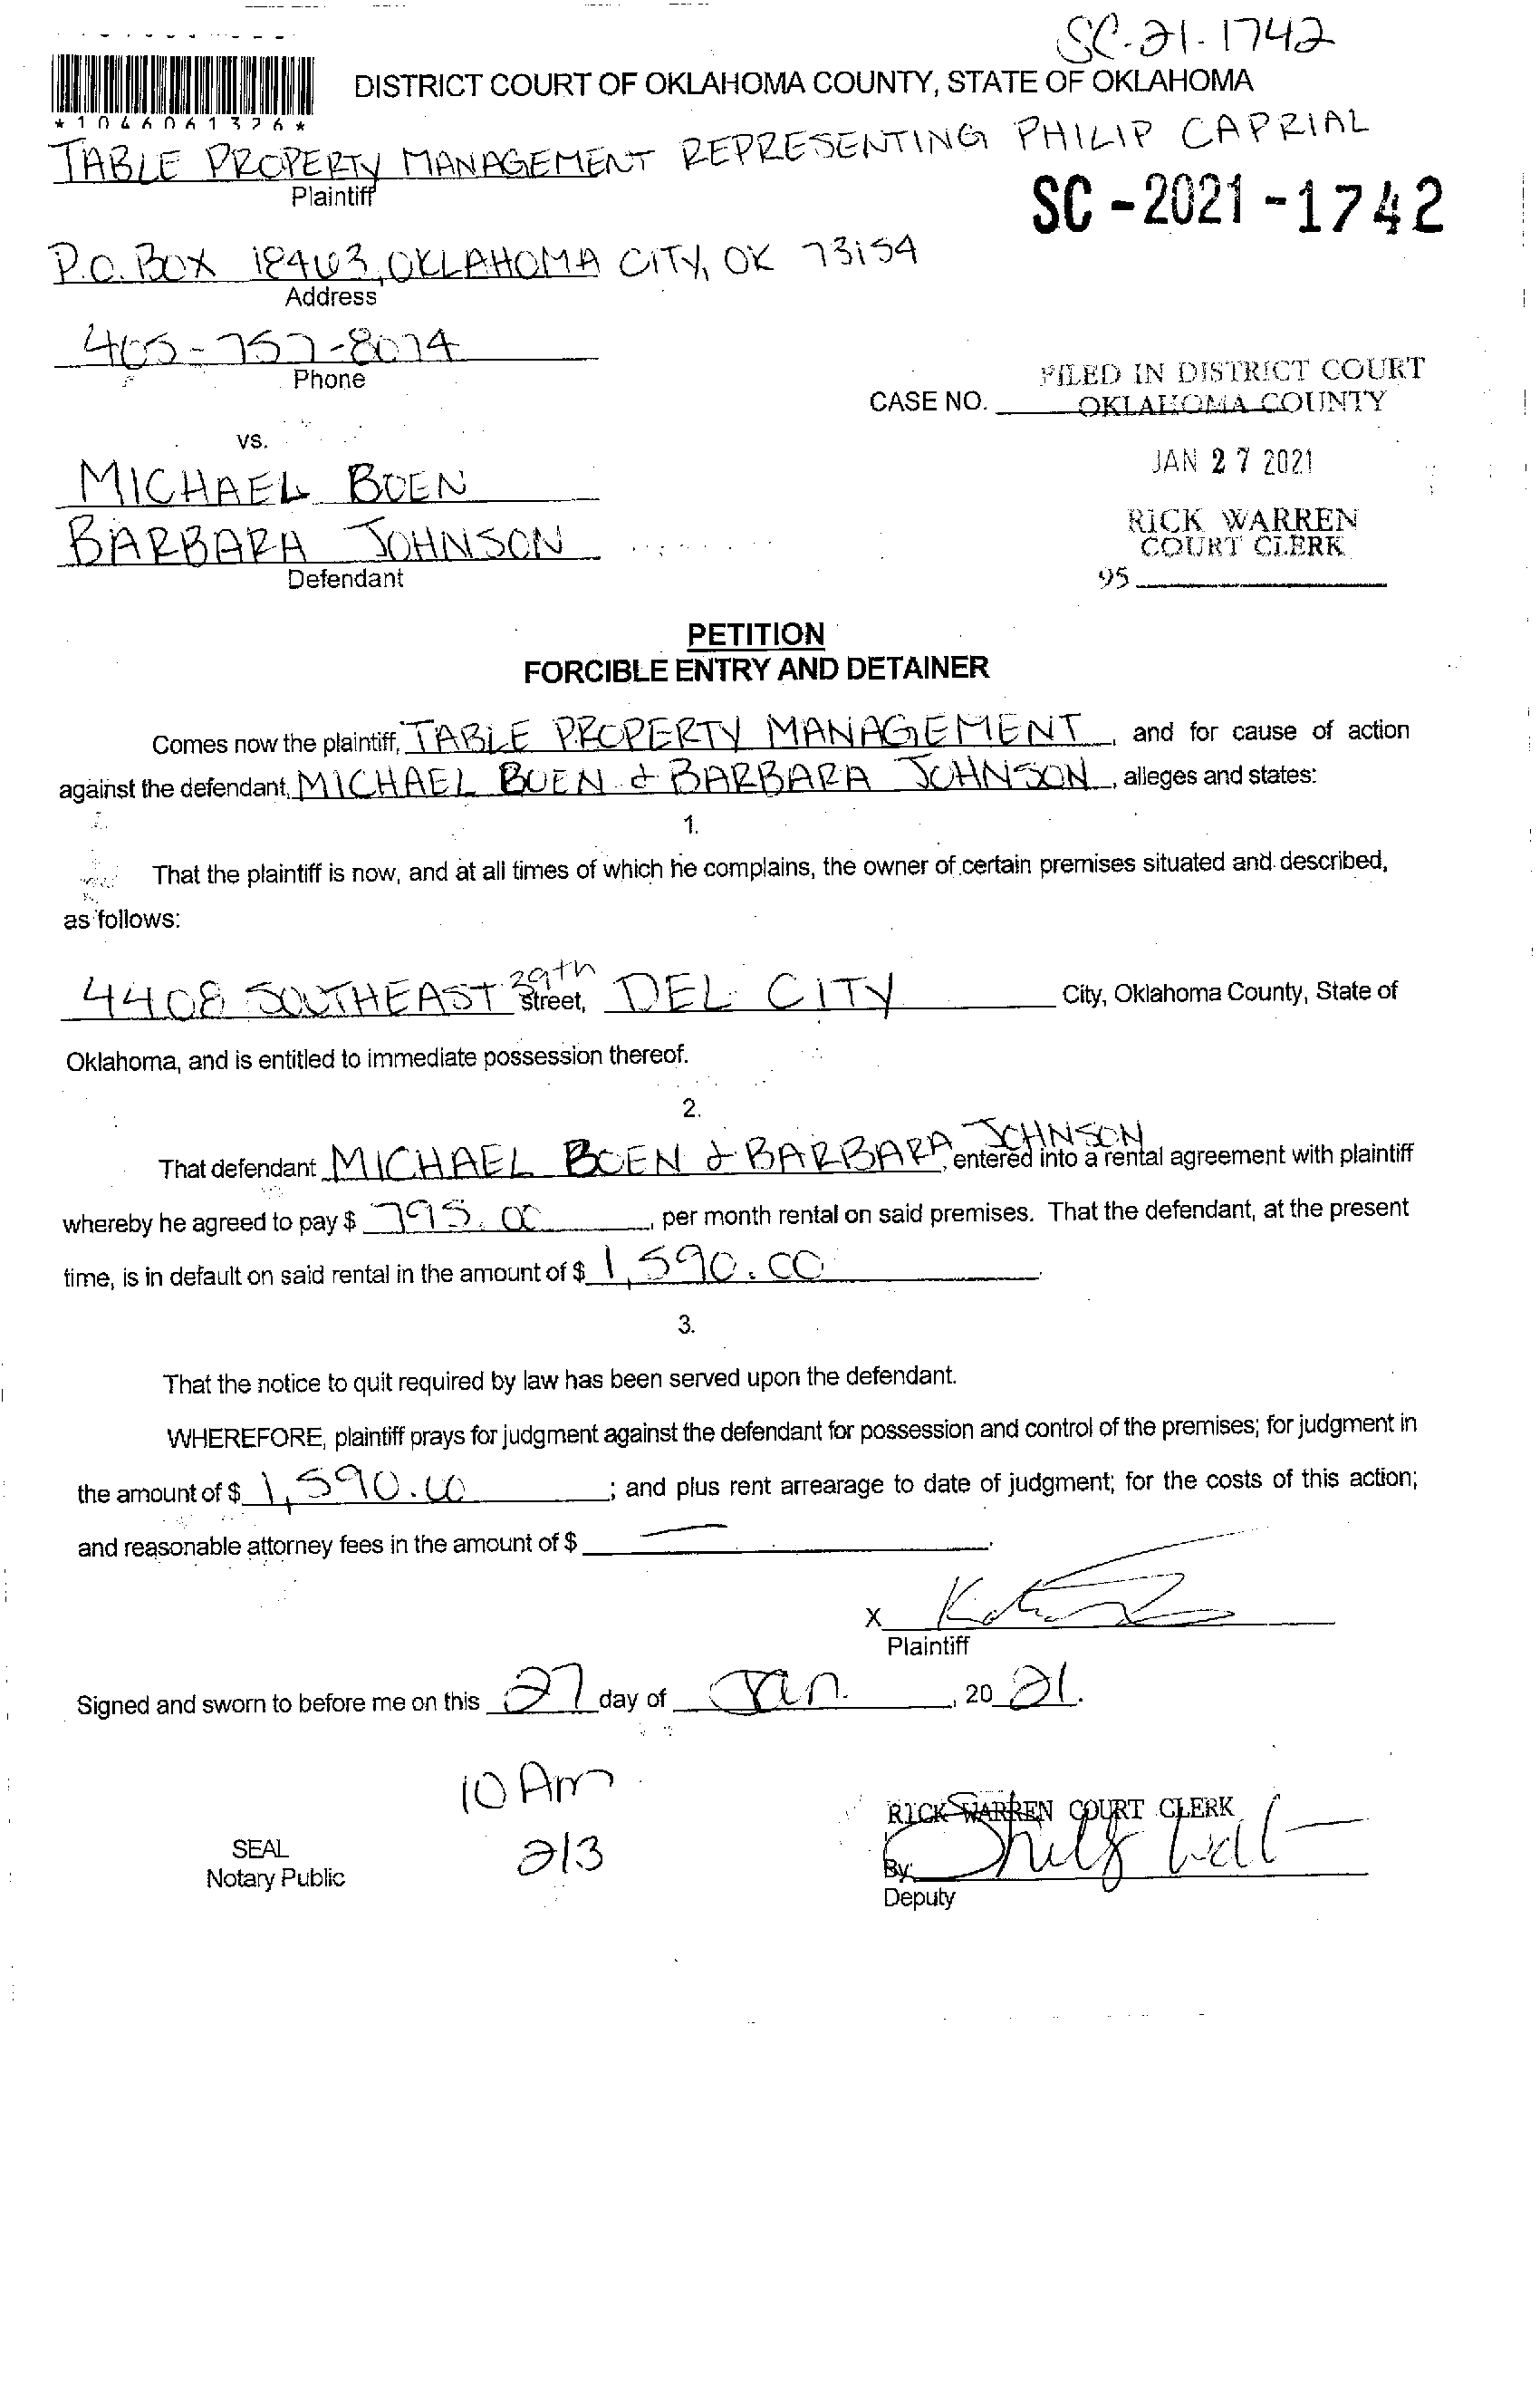 SC-21-1742
DISTRICT COURT OF OKLAHOMA COUNTY, STATE OF OKLAHOMA
*1046061326*
TABLE PROPERTY MANAGEMENT REPRESENTING PHILIP CAPRIAL
Plaintiff
SC-2021-1742
P.O. BOX 18463, OKLAHOMA CITY, OK 73154
Address
405-757-8074
Phone
FILED IN DISTRICT COURT
CASE NO. OKLAHOMA COUNTY
vs.
JAN 27 2021
MICHAEL BOEN
RICK WARREN
BARBARA JOHNSON
COURT CLERK
Defendant
95
PETITION
FORCIBLE ENTRY AND DETAINER
Comes now the plaintiff, TABLE PROPERTY MANAGEMENT, and for cause of action
against the defendant, MICHAEL BOEN & BARBARA JOHNSON, alleges and states:
1.
That the plaintiff is now, and at all times of which he complains, the owner of certain premises situated and described,
as follows:
4408 SOUTHEAST 29th Street, DEL CITY City, Oklahoma County, State of
Oklahoma, and is entitled to immediate possession thereof.
2.
That defendant MICHAEL BOEN & BARBARA JOHNSON, entered into a rental agreement with plaintiff
whereby he agreed to pay $ 795.00, per month rental on said premises. That the defendant, at the present
time, is in default on said rental in the amount of $ 1,590.00.
3.
That the notice to quit required by law has been served upon the defendant.
WHEREFORE, plaintiff prays for judgment against the defendant for possession and control of the premises; for judgment in
the amount of $ 1,590.00; and plus rent arrearage to date of judgment; for the costs of this action;
and reasonable attorney fees in the amount of $ —.
X
Plaintiff
Signed and sworn to before me on this 27 day of Jan., 20 21.
10 Am
RICK WARREN COURT CLERK
SEAL
2/3
Notary Public
By:
Deputy